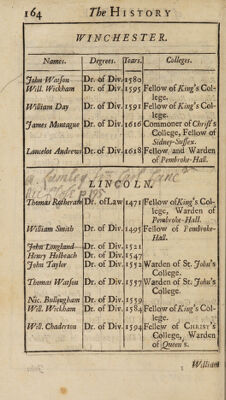 164 The HISTORY
WINCHESTER.
Names. Degrees. Years. Colleges.
John Watson Dr. of Div. 1580
Will. Wickham Dr. of Div. 1595 Fellow of King's Col-
lege.
William Day Dr. of Div. 1591 Fellow of King's Col-
lege.
James Montague Dr. of Div. 1616 Commoner of Christ's
College, Fellow of
Sidney-Sussex.
Lancelot Andrews Dr. of Div. 1618 Fellow and Warden
of Pembroke-Hall.
LINCOLN.
Thomas Rotheram Dr. of Law 1471 Fellow of King's Col-
lege, Warden of
Pembroke-Hall.
William Smith Dr. of Div. 1495 Fellow of Pembroke-
Hall.
John Longland Dr. of Div. 1521
Henry Holbeach Dr. of Div. 1547
John Taylor Dr. of Div. 1552 Warden of St. John's
College.
Thomas Watson Dr. of Div. 1557 Warden of St. John's
College.
Nic. Bullingham Dr. of Div. 1559
Will. Wickham Dr. of Div. 1584 Fellow of King's Col-
lege.
Will. Chaderton Dr. of Div. 1594 Fellow of CHRIST's
College, Warden
of Queen's.
William